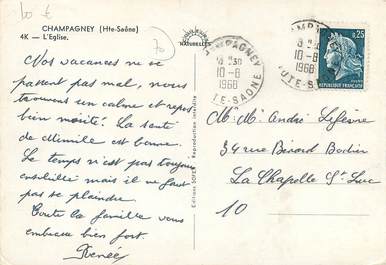 10 €
CHAMPAGNEY (Hte-Saône)
4K. — L'Eglise.
70
NATURELLES
Nos vacances ne se
passent pas mal, nous
trouvons un calme et repos
bien mérité. La santé
de Mimile est bonne.
Le temps n'est pas toujours
ensoleillé mais il ne faut
pas se plaindre.
Toute la famille vous
embrasse bien fort.
Renée
Reproduction interdite
CHAMPAGNEY
10-8
1968
HTE-SAONE
10-8
1968
0,25
REPUBLIQUE FRANÇAISE
M. Mme André Lefèvre
34 rue Bénard Bodin
La Chapelle St Luc
10